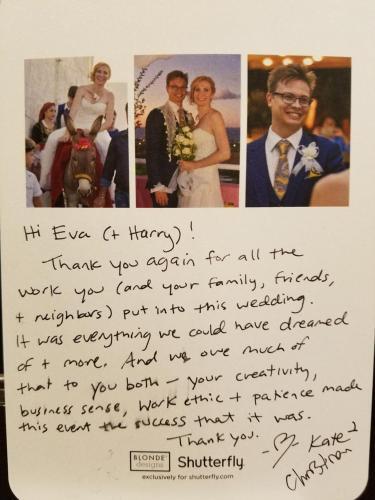 Hi Eva (+ Harry)!
Thank you again for all the
work you (and your family, friends,
+ neighbors) put into this wedding.
It was everything we could have dreamed
of + more. And we owe much of
that to you both - your creativity,
business sense, work ethic + patience made
this event the success that it was.
Thank you.
- Kate
Christian
BLONDE
designs
Shutterfly
exclusively for shutterfly.com